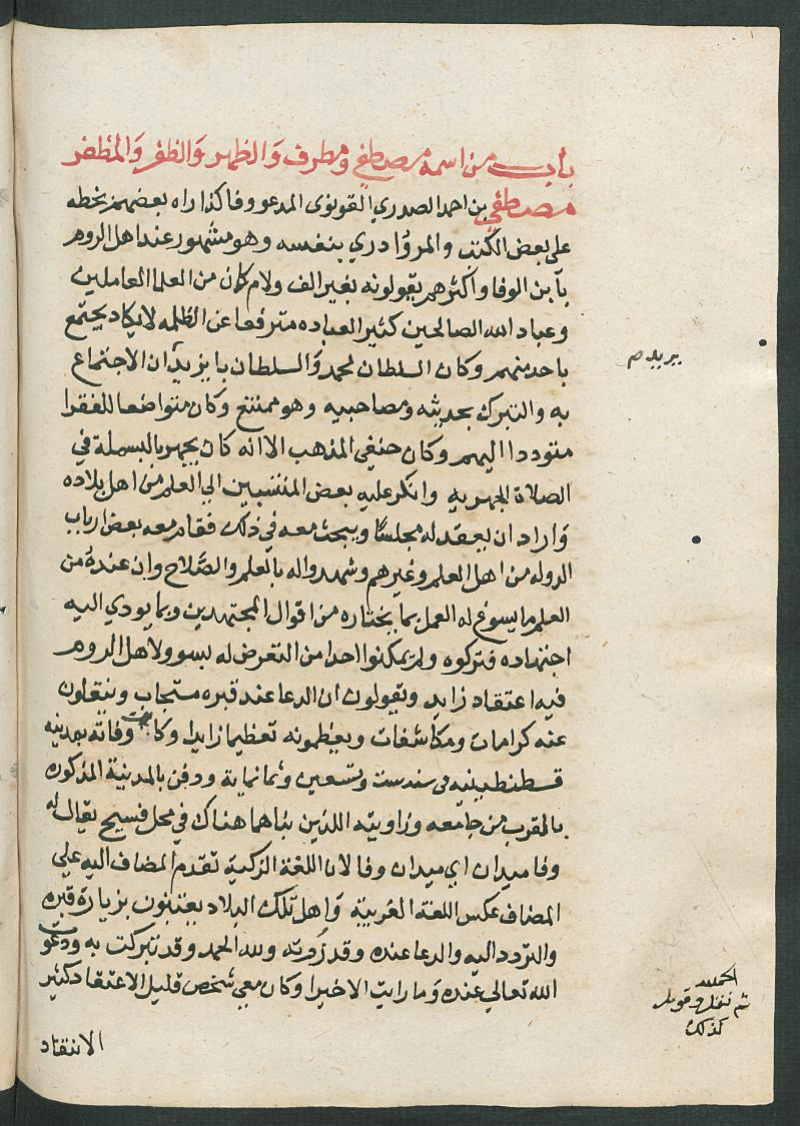 باب من اسمه مصطفى ومطرف والظهر والظفر والمظفر
مصطفى بن احمد الصدري القونوى المدعو وفا كذا راه بعضهم بخطه
على بعض الكتب والمرؤادري بنفسه وهو مشهور عند اهل الروم
بابن الوفا واكثرهم يقولونه بغير الف ولام كان من العلما العاملين
وعباد الله الصالحين كثير العباده مترفعا عن الظلمه لا يكاد يجتمع
باحد منهم وكان السلطان محمد والسلطان بايزيد ان الاجتماع
به والتبرك بحديثه ومصاحبيه وهو ممتنع وكان متواضعا للفقرا
متوددا اليهم وكان حنفي المذهب الا انه كان يجهر بالبسملة في
الصلاة الجهريه وانكر عليه بعض المنتسبين الى العلم من اهل بلاده
واراد ان يعقد له مجلسا ويبحث معه في ذلك فقام معه بعض ارباب
الدوله من اهل العلم وغيرهم وشهدوا له بالعلم والصلاح وان عنده من
العلم ما يسوغ له العمل بما يختاره من اقوال المجتهدين وبما يودي اليه
اجتهاده فتركوه ولم يمكنوا احدا من التعرض له بسو ولاهل الروم
فيه اعتقاد زايد ويقولون ان الدعا عند قبره مستجاب وينقلون
عنه كرامات ومكاشفات ويعظمونه تعظيما زايدا وكانت وفاته بمدينه
قسطنطينيه في سنه ست وتسعين وثمانماية ودفن بالمدينة المذكوره
بالقرب من جامعه وزاويته اللذين بناهما هناك في محل فسيح يقال له
وفا ميدان اي ميدان وفا لان اللغة التركية تقدم المضاف اليه على
المضاف عكس اللغة العربية واهل تلك البلاد يعتنون بزيارة قبره
والتردد اليه والدعا عنده وقد زرته ولله الحمد وقد تبركت به ودعوت
الله تعالى عنده وما رايت الا خيرا وكان معي شخص قليل الاعتقاد كثير
الانتقاد
يريدم
الحمد لله
ثم نقل وقوبل
كذلك